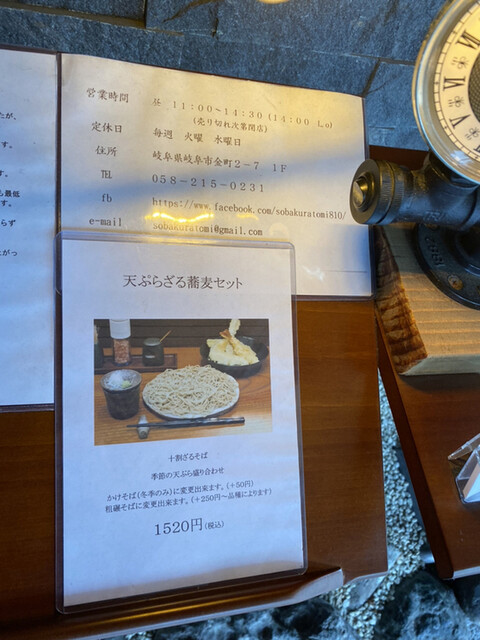 たが、
す。
す。
も最低
です。
らず
がっ
営業時間 昼 11:00~14:30(14:00 L.o)
(売り切れ次第閉店)
定休日 毎週 火曜 水曜日
住所 岐阜県岐阜市金町2-7 1F
TEL 058-215-0231
fb https://www.facebook.com/sobakuratomi810/
e-mail sobakuratomi@gmail.com
天ぷらざる蕎麦セット
十割ざるそば
季節の天ぷら盛り合わせ
かけそば(冬季のみ)に変更出来ます。(+50円)
粗碾そばに変更出来ます。(+250円~品種によります)
1520円(税込)
VI
VII